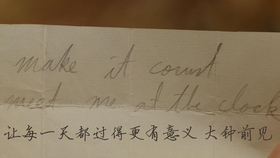 make it count
meet me at the clock
让每一天都过得更有意义 大钟前见